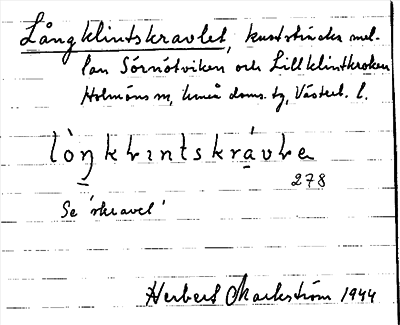 Långklintskravlet, kuststräcka mel-
lan Sörnötviken och Lillklintkroken
Holmöns sn, Umeå doms. tg, Västerb. l.
lòŋklıntskrávlɐ
278
Se 'skravel'
Herbert Markström 1944